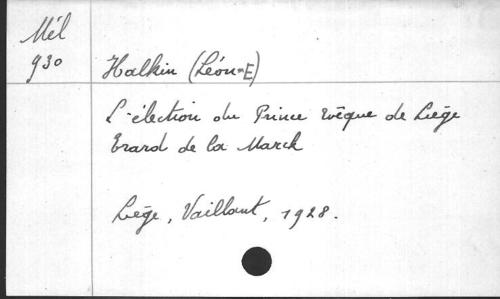 Mél
930
Halkin (Léon-E)
L'élection du Prince Evêque de Liège
Erard de la Marck
Liège, Vaillant, 1928.